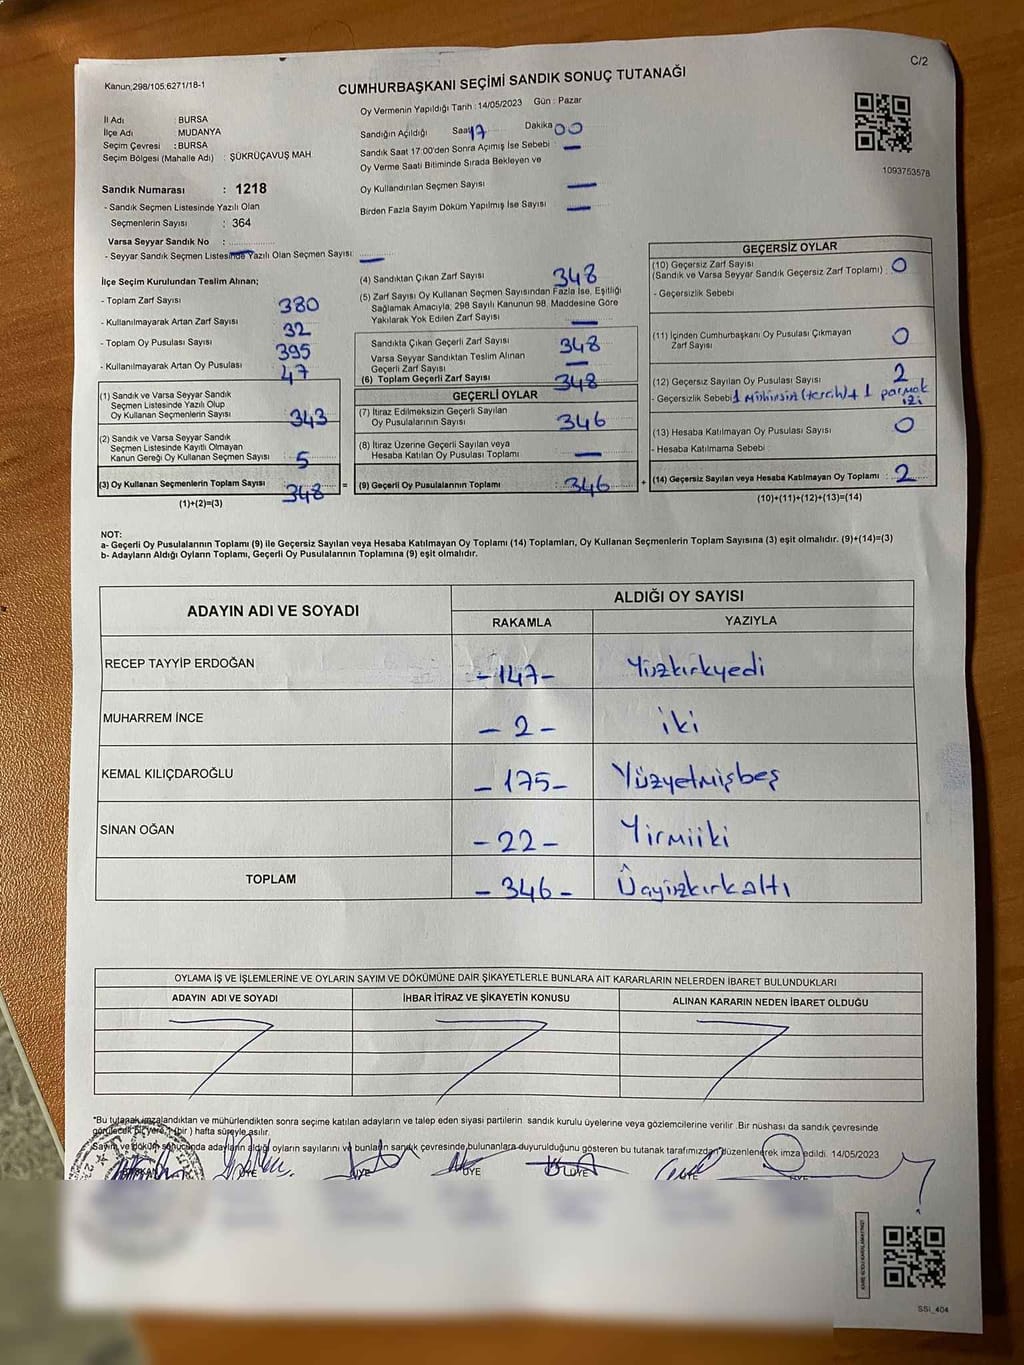 Kanun;298/105;6271/18-1
C/2
CUMHURBAŞKANI SEÇİMİ SANDIK SONUÇ TUTANAĞI
İl Adı : BURSA
İlçe Adı : MUDANYA
Seçim Çevresi : BURSA
Seçim Bölgesi (Mahalle Adı) : ŞÜKRÜÇAVUŞ MAH
Oy Vermenin Yapıldığı Tarih : 14/05/2023 Gün : Pazar
Sandığın Açıldığı Saat 17 Dakika 00
Sandık Saat 17:00'den Sonra Açımış İse Sebebi : —
Oy Verme Saati Bitiminde Sırada Bekleyen ve
Oy Kullandırılan Seçmen Sayısı —
Birden Fazla Sayım Döküm Yapılmış İse Sayısı —
1093753578
Sandık Numarası : 1218
- Sandık Seçmen Listesinde Yazılı Olan
Seçmenlerin Sayısı : 364
Varsa Seyyar Sandık No : —
- Seyyar Sandık Seçmen Listesinde Yazılı Olan Seçmen Sayısı: —
İlçe Seçim Kurulundan Teslim Alınan;
- Toplam Zarf Sayısı 380
- Kullanılmayarak Artan Zarf Sayısı 32
- Toplam Oy Pusulası Sayısı 395
- Kullanılmayarak Artan Oy Pusulası 47
(1) Sandık ve Varsa Seyyar Sandık
Seçmen Listesinde Yazılı Olup
Oy Kullanan Seçmenlerin Sayısı 343
(2) Sandık ve Varsa Seyyar Sandık
Seçmen Listesinde Kayıtlı Olmayan
Kanun Gereği Oy Kullanan Seçmen Sayısı : 5
(3) Oy Kullanan Seçmenlerin Toplam Sayısı 348 =
(1)+(2)=(3)
(4) Sandıktan Çıkan Zarf Sayısı 348
(5) Zarf Sayısı Oy Kullanan Seçmen Sayısından Fazla İse, Eşitliği
Sağlamak Amacıyla; 298 Sayılı Kanunun 98. Maddesine Göre
Yakılarak Yok Edilen Zarf Sayısı —
Sandıkta Çıkan Geçerli Zarf Sayısı 348
Varsa Seyyar Sandıktan Teslim Alınan
Geçerli Zarf Sayısı —
(6) Toplam Geçerli Zarf Sayısı 348
GEÇERLİ OYLAR
(7) İtiraz Edilmeksizin Geçerli Sayılan
Oy Pusulalarının Sayısı 346
(8) İtiraz Üzerine Geçerli Sayılan veya
Hesaba Katılan Oy Pusulası Toplamı —
(9) Geçerli Oy Pusulalarının Toplamı : 346 +
GEÇERSİZ OYLAR
(10) Geçersiz Zarf Sayısı
(Sandık ve Varsa Seyyar Sandık Geçersiz Zarf Toplamı) : 0
- Geçersizlik Sebebi
(11) İçinden Cumhurbaşkanı Oy Pusulası Çıkmayan
Zarf Sayısı 0
(12) Geçersiz Sayılan Oy Pusulası Sayısı 2
- Geçersizlik Sebebi 1 Mühürsüz (tercih) + 1 parmak
izi
(13) Hesaba Katılmayan Oy Pusulası Sayısı 0
- Hesaba Katılmama Sebebi
(14) Geçersiz Sayılan veya Hesaba Katılmayan Oy Toplamı : 2
(10)+(11)+(12)+(13)=(14)
NOT:
a- Geçerli Oy Pusulalarının Toplamı (9) ile Geçersiz Sayılan veya Hesaba Katılmayan Oy Toplamı (14) Toplamları, Oy Kullanan Seçmenlerin Toplam Sayısına (3) eşit olmalıdır. (9)+(14)=(3)
b- Adayların Aldığı Oyların Toplamı, Geçerli Oy Pusulalarının Toplamına (9) eşit olmalıdır.
ADAYIN ADI VE SOYADI
ALDIĞI OY SAYISI
RAKAMLA YAZIYLA
RECEP TAYYİP ERDOĞAN -147- Yüzkırkyedi
MUHARREM İNCE -2- iki
KEMAL KILIÇDAROĞLU -175- Yüzyetmişbeş
SİNAN OĞAN -22- Yirmiiki
TOPLAM -346- Üçyüzkırkaltı
OYLAMA İŞ VE İŞLEMLERİNE VE OYLARIN SAYIM VE DÖKÜMÜNE DAİR ŞİKAYETLERLE BUNLARA AİT KARARLARIN NELERDEN İBARET BULUNDUKLARI
ADAYIN ADI VE SOYADI İHBAR İTİRAZ VE ŞİKAYETİN KONUSU ALINAN KARARIN NEDEN İBARET OLDUĞU
"Bu tutanak imzalandıktan ve mühürlendikten sonra seçime katılan adayların ve talep eden siyasi partilerin sandık kurulu üyelerine veya gözlemcilerine verilir .Bir nüshası da sandık çevresinde
görülecek bir yere 1 (bir ) hafta süreyle asılır.
Sayım ve döküm sonucunda adayların aldığı oyların sayılarını ve bunların sandık çevresinde bulunanlara duyurulduğunu gösteren bu tutanak tarafımızdan düzenlenerek imza edildi. 14/05/2023
ÜYE ÜYE ÜYE ÜYE
SSİ_404